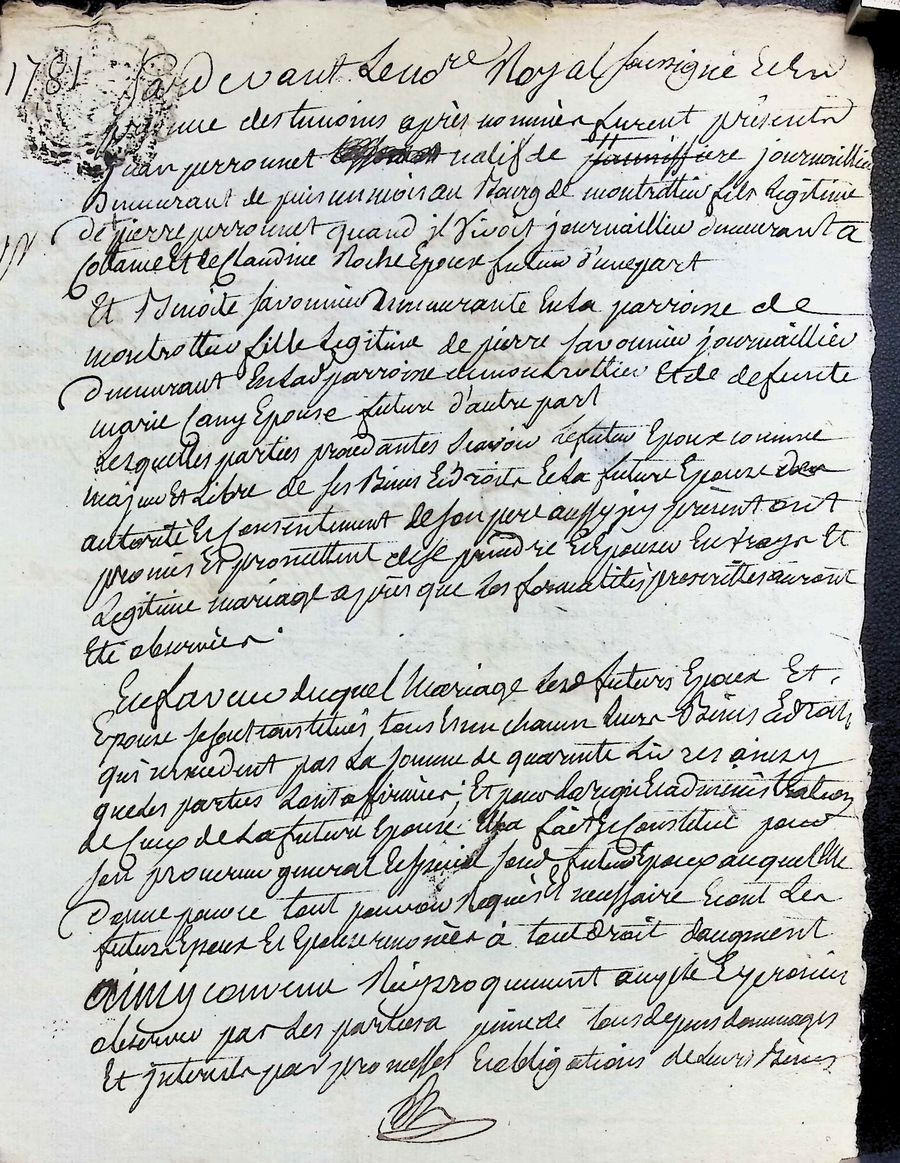 1781
Pardevant Le no.re Royal soussigné Et En
presence des temoins après nommés furent présents
jean perronnet natif de journaillier
Demeurant depuis un mois au Bourg de montrottier fils Legitime
de pierre perronnet quand il Vivoit journaillier demeurant a
Et de Claudine Roche Epoux futur d'une part
Et Benoite savonnier demeurante En La parroisse de
montrottier fille Legitime de pierre savonnier journaillier
demeurant En lad. parroisse de montrottier Et de defunte
marie Cany Epouse future d'autre part
Lesquelles parties procedantes scavoir Le futur Epoux comme
majeur Et Libre de ses Biens Et Droits Et La future Epouse de
autorité Et Consentement de son pere aussy icy présent ont
promis Et promettent de se prendre Et Epouser En Vray Et
Legitime mariage après que Les formalités prescrittes auront
Eté observées.
En faveur duquel Mariage Lesd. futurs Epoux Et
Epouse se sont constitués tous Et un chacun Leurs Biens Et droits
qui n'excedent pas La somme de quarente Livres ainsy
que les parties L'ont affirmés, Et pour La regie Et administration
de Ceux de La future Epouse Elle a fait Et Constitué pour
son procureur general Et special son d. futur Epoux auquel Elle
Donne pour ce tout pouvoir Requis Et necessaire Et ont Les
futurs Epoux Et Epouse renoncés à tout Droit d'augment
ainsy convenu Réciproquement accepté Et promis
observer par Les parties a peine de tous depens dommages
Et interets par promesses Et obligations de Leurs Biens